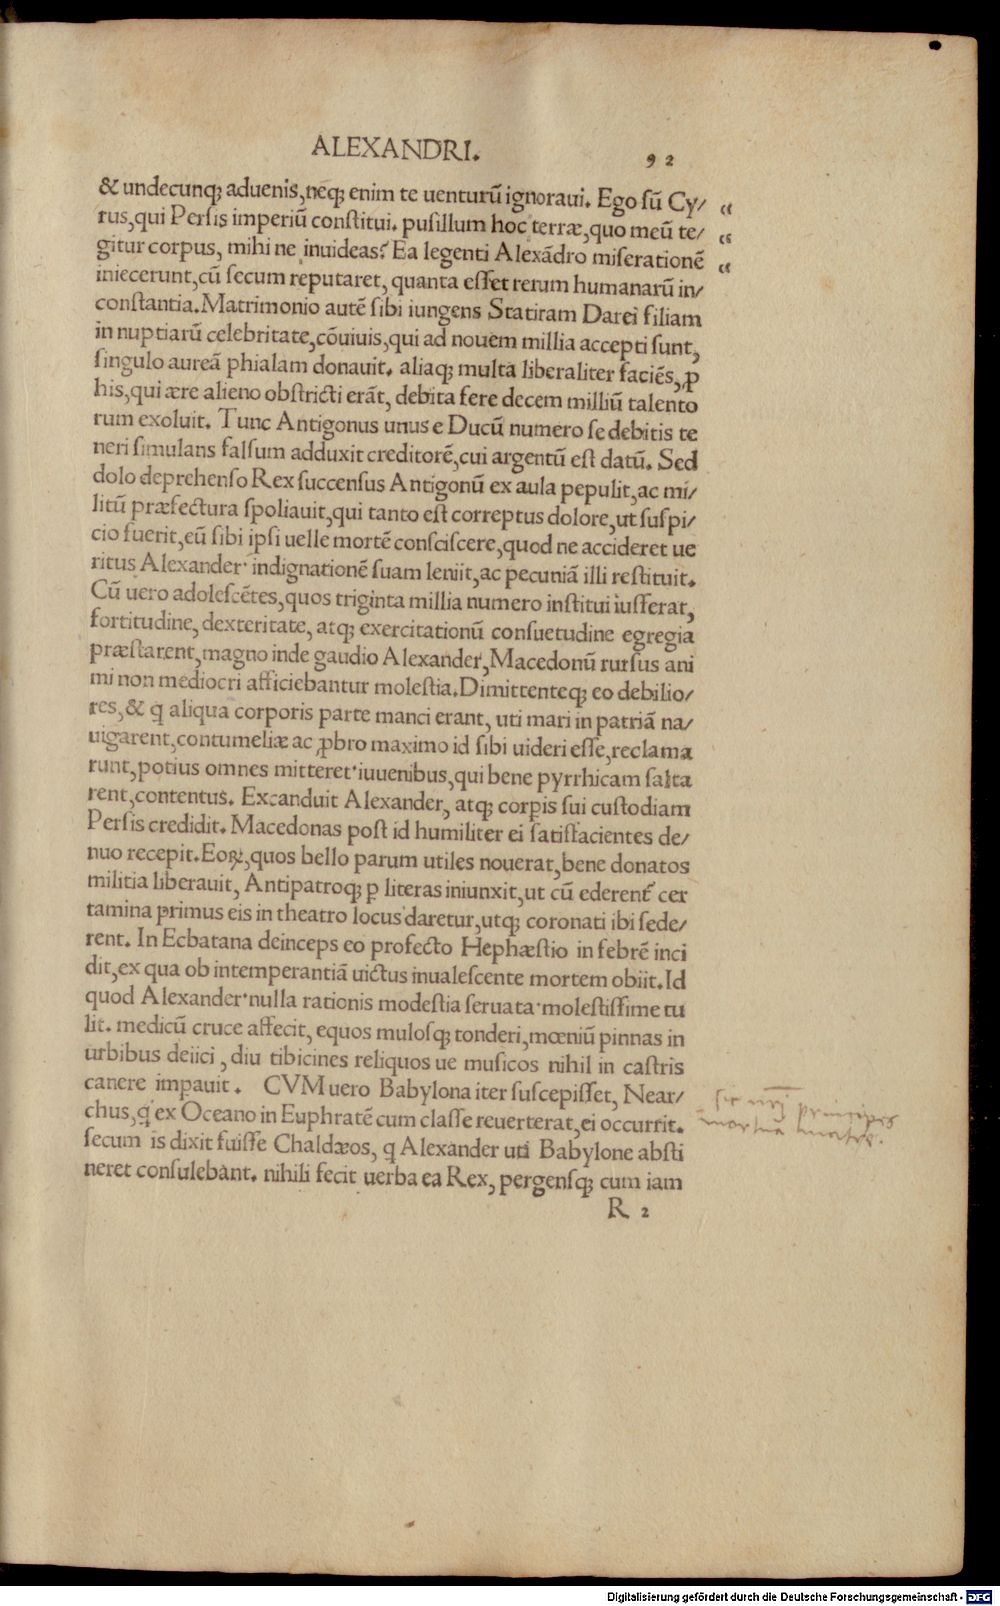 ALEXANDRI.
92
& undecunq; aduenis, neq; enim te uenturū ignoraui. Ego sū Cy/ “
rus, qui Persis imperiū constitui. pusillum hoc terræ, quo meū te/ “
gitur corpus, mihi ne inuideas? Ea legenti Alexādro miserationē “
iniecerunt, cū secum reputaret, quanta esset rerum humanarū in/
constantia. Matrimonio autē sibi iungens Statiram Darei filiam
in nuptiarū celebritate, cōuiuis, qui ad nouem millia accepti sunt,
singulo aureā phialam donauit. aliaq; multa liberaliter faciēs, ꝓ
his, qui ære alieno obstricti erāt, debita fere decem milliū talento
rum exoluit. Tunc Antigonus unus e Ducū numero se debitis te
neri simulans falsum adduxit creditorē, cui argentū est datū. Sed
dolo deprehenso Rex succensus Antigonū ex aula pepulit, ac mi/
litū præfectura spoliauit, qui tanto est correptus dolore, ut suspi/
cio fuerit, eū sibi ipsi uelle mortē consciscere, quod ne accideret ue
ritus Alexander· indignationē suam leniit, ac pecuniā illi restituit.
Cū uero adolescētes, quos triginta millia numero institui iusserat,
fortitudine, dexteritate, atq; exercitationū consuetudine egregia
præstarent, magno inde gaudio Alexander, Macedonū rursus ani
mi non mediocri afficiebantur molestia. Dimittenteq; eo debilio/
res, & q̄ aliqua corporis parte manci erant, uti mari in patriā na/
uigarent, contumeliæ ac ꝓbro maximo id sibi uideri esse, reclama
runt, potius omnes mitteret· iuuenibus, qui bene pyrrhicam salta
rent, contentus. Excanduit Alexander, atq; corpis sui custodiam
Persis credidit. Macedonas post id humiliter ei satisfacientes de/
nuo recepit. Eoꝝ, quos bello parum utiles nouerat, bene donatos
militia liberauit, Antipatroq; p literas iniunxit, ut cū ederent᷑ cer
tamina primus eis in theatro locus daretur, utq; coronati ibi sede/
rent. In Ecbatana deinceps eo profecto Hephæstio in febrē inci
dit, ex qua ob intemperantiā uictus inualescente mortem obiit. Id
quod Alexander· nulla rationis modestia seruata· molestissime tu
lit. medicū cruce affecit, equos mulosq; tonderi, mœniū pinnas in
urbibus deiici, diu tibicines reliquos ue musicos nihil in castris
canere impauit. CVM uero Babylona iter suscepisset, Near/
chus, q̄ ex Oceano in Euphratē cum classe reuerterat, ei occurrit.
secum is dixit fuisse Chaldæos, q̄ Alexander uti Babylone absti
neret consulebant. nihili fecit uerba ea Rex, pergensq; cum iam
R 2
principes
Digitalisierung gefördert durch die Deutsche Forschungsgemeinschaft - DFG